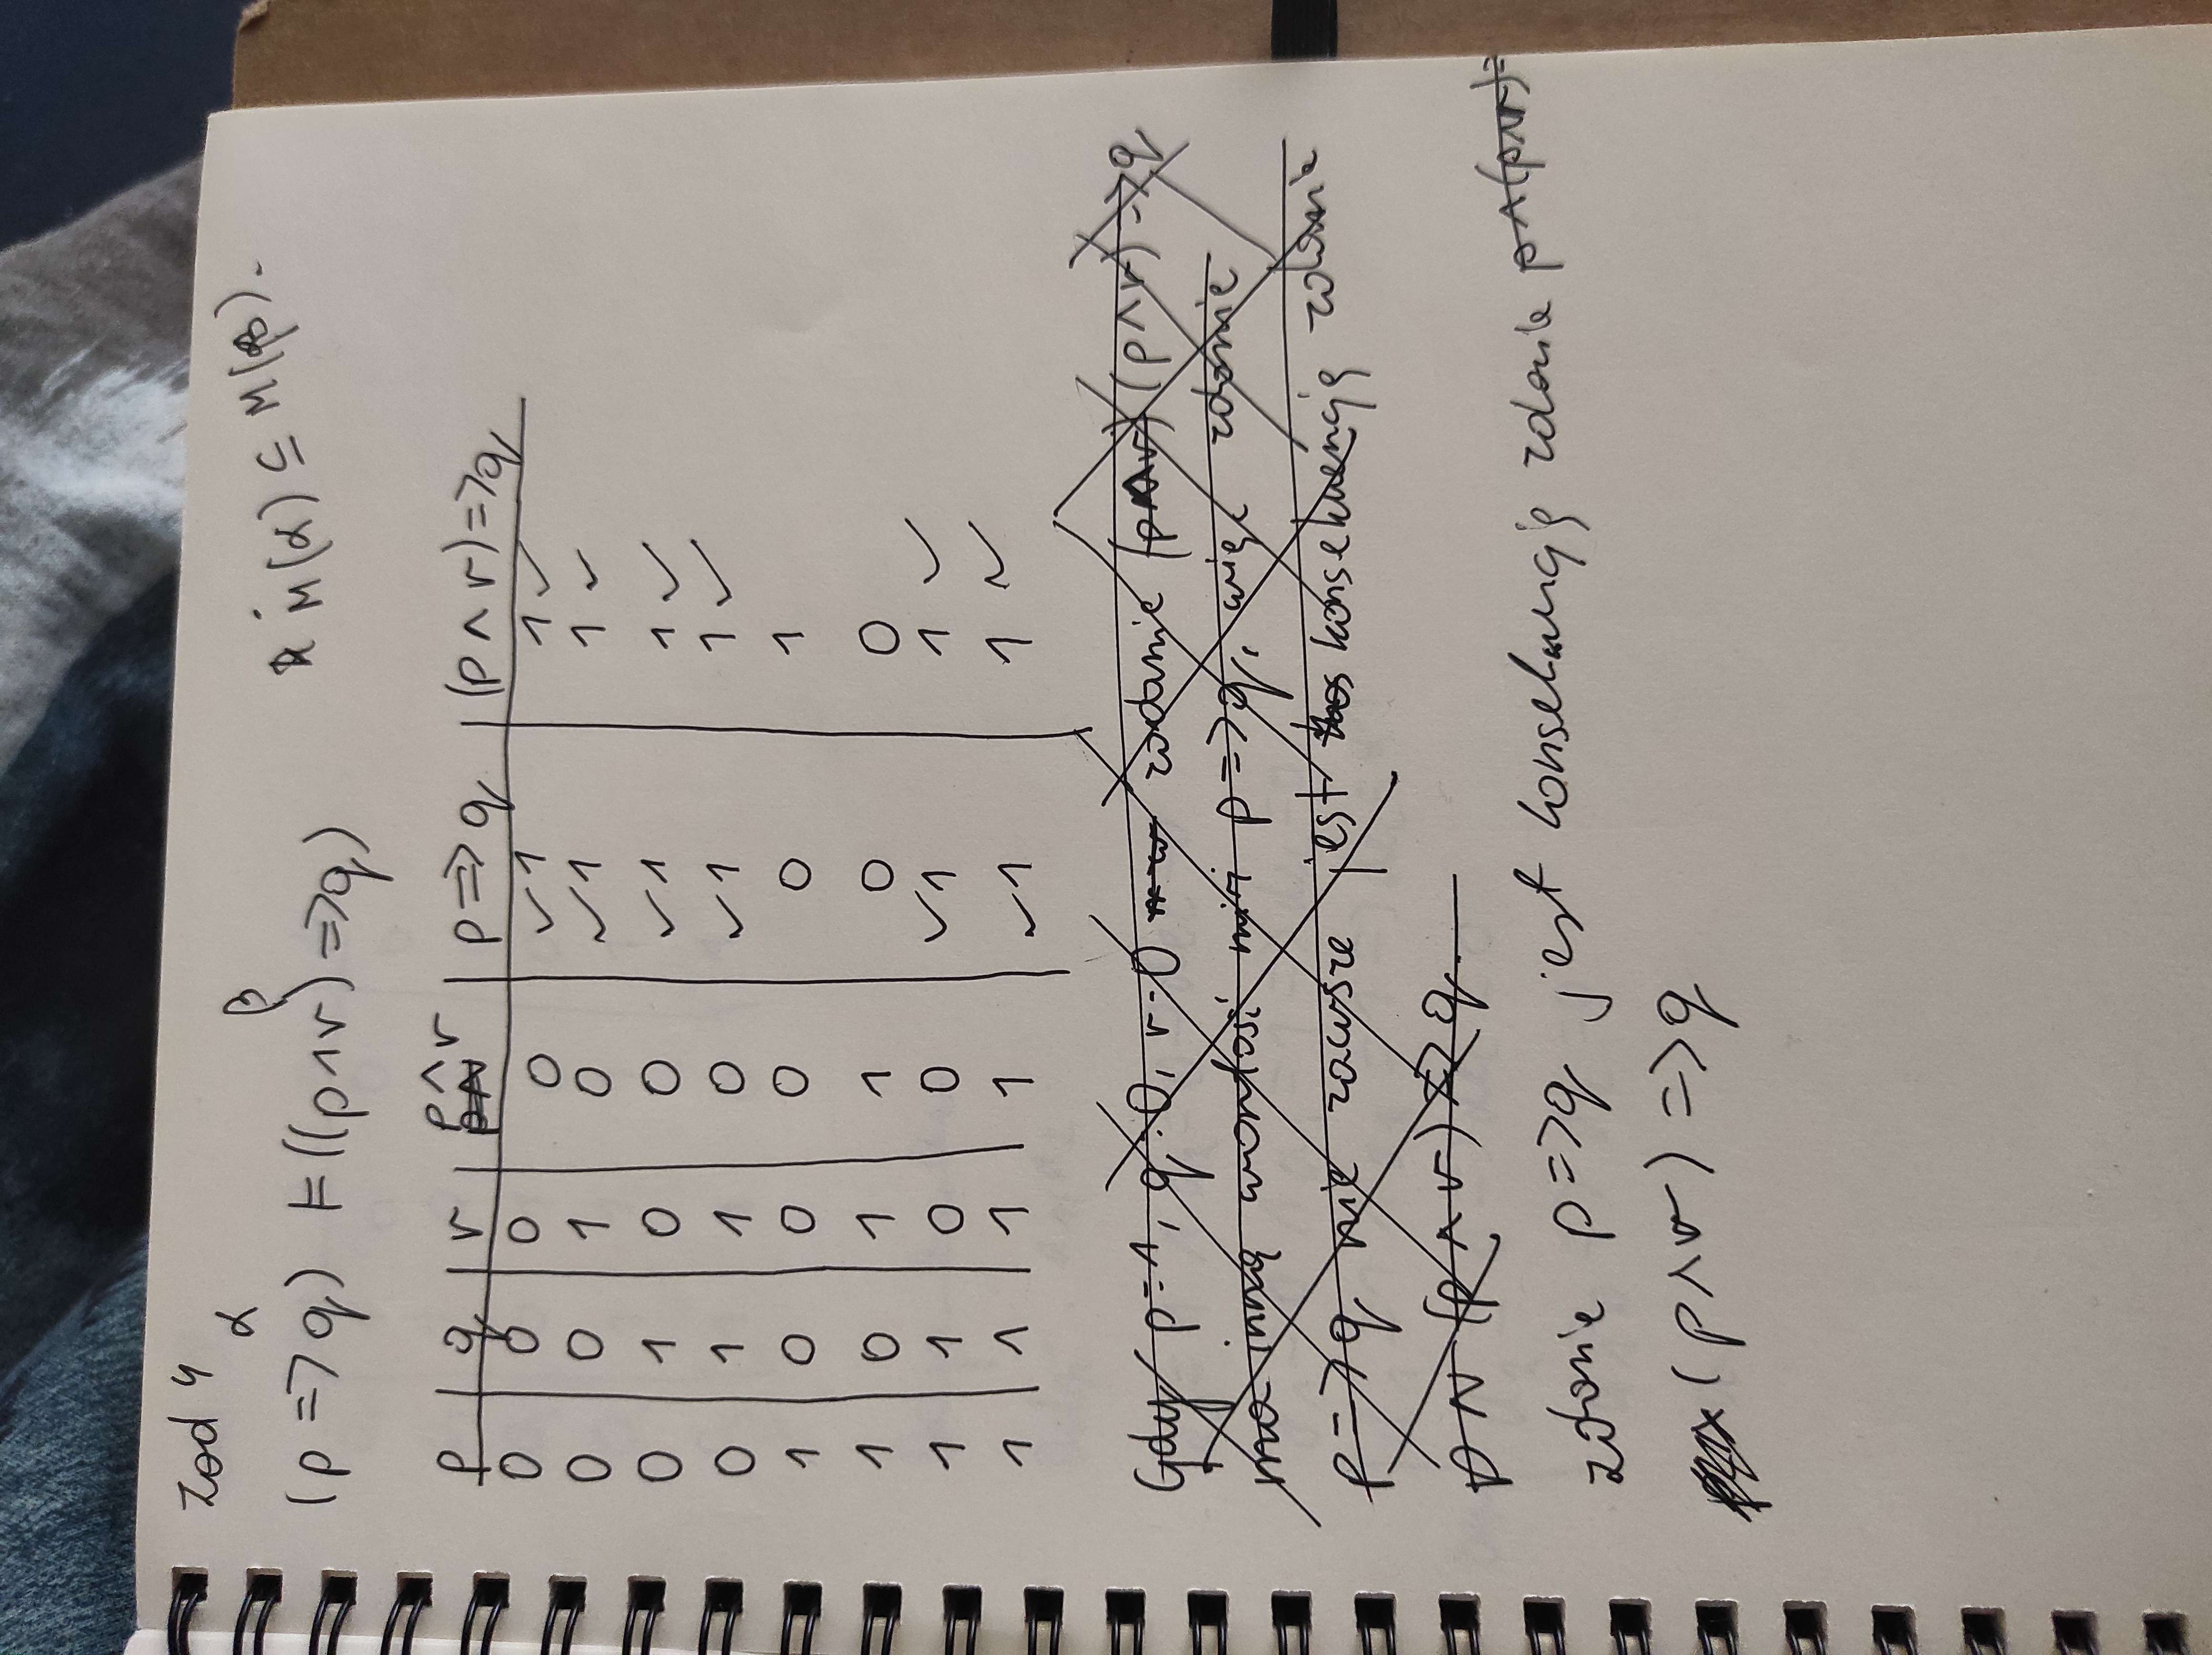 zad 4
α β
(p => q) ⊨ ((p ∧ r) => q) M(α) ⊆ M(β).
p | q | r | p ∧ r | p => q | (p ∧ r) => q
0 0 0 0 ✓1 1✓
0 0 1 0 ✓1 1✓
0 1 0 0 ✓1 1✓
0 1 1 0 ✓1 1✓
1 0 0 0 0 1
1 0 1 1 0 0
1 1 0 0 ✓1 1✓
1 1 1 1 ✓1 1✓
Gdy p=1, q=0, r=0 zdanie (p∧r) (p∧r) => q
ma p => q, więc zdanie
p => q nie zawsze jest konsekwencją zdania
p ∧ (p ∧ r) => q
zdanie p => q jest konsekwencją zdania p∧(p∧r)=
(p ∧ r) => q